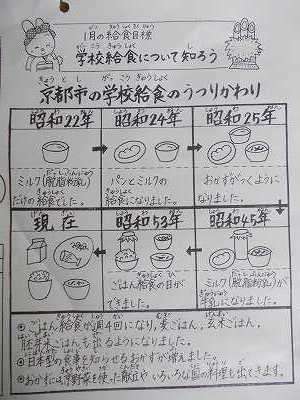 1月の給食目標
学校給食について知ろう
京都市の学校給食のうつりかわり
昭和22年
ミルク(脱脂粉乳)
だけの給食でした。
昭和24年
パンとミルクの
給食になりました。
昭和25年
おかずがつくように
なりました。
昭和45年
ミルク(脱脂粉乳)が
牛乳になりました。
昭和53年
ごはん給食の日が
できました。
現在
ごはん給食が週4回になり、麦ごはん、玄米ごはん、
胚芽米ごはんも出るようになりました。
日本型の食事を知らせるおかずが増えました。
おかずに京野菜を使った献立やいろいろな国の料理も出てきます。